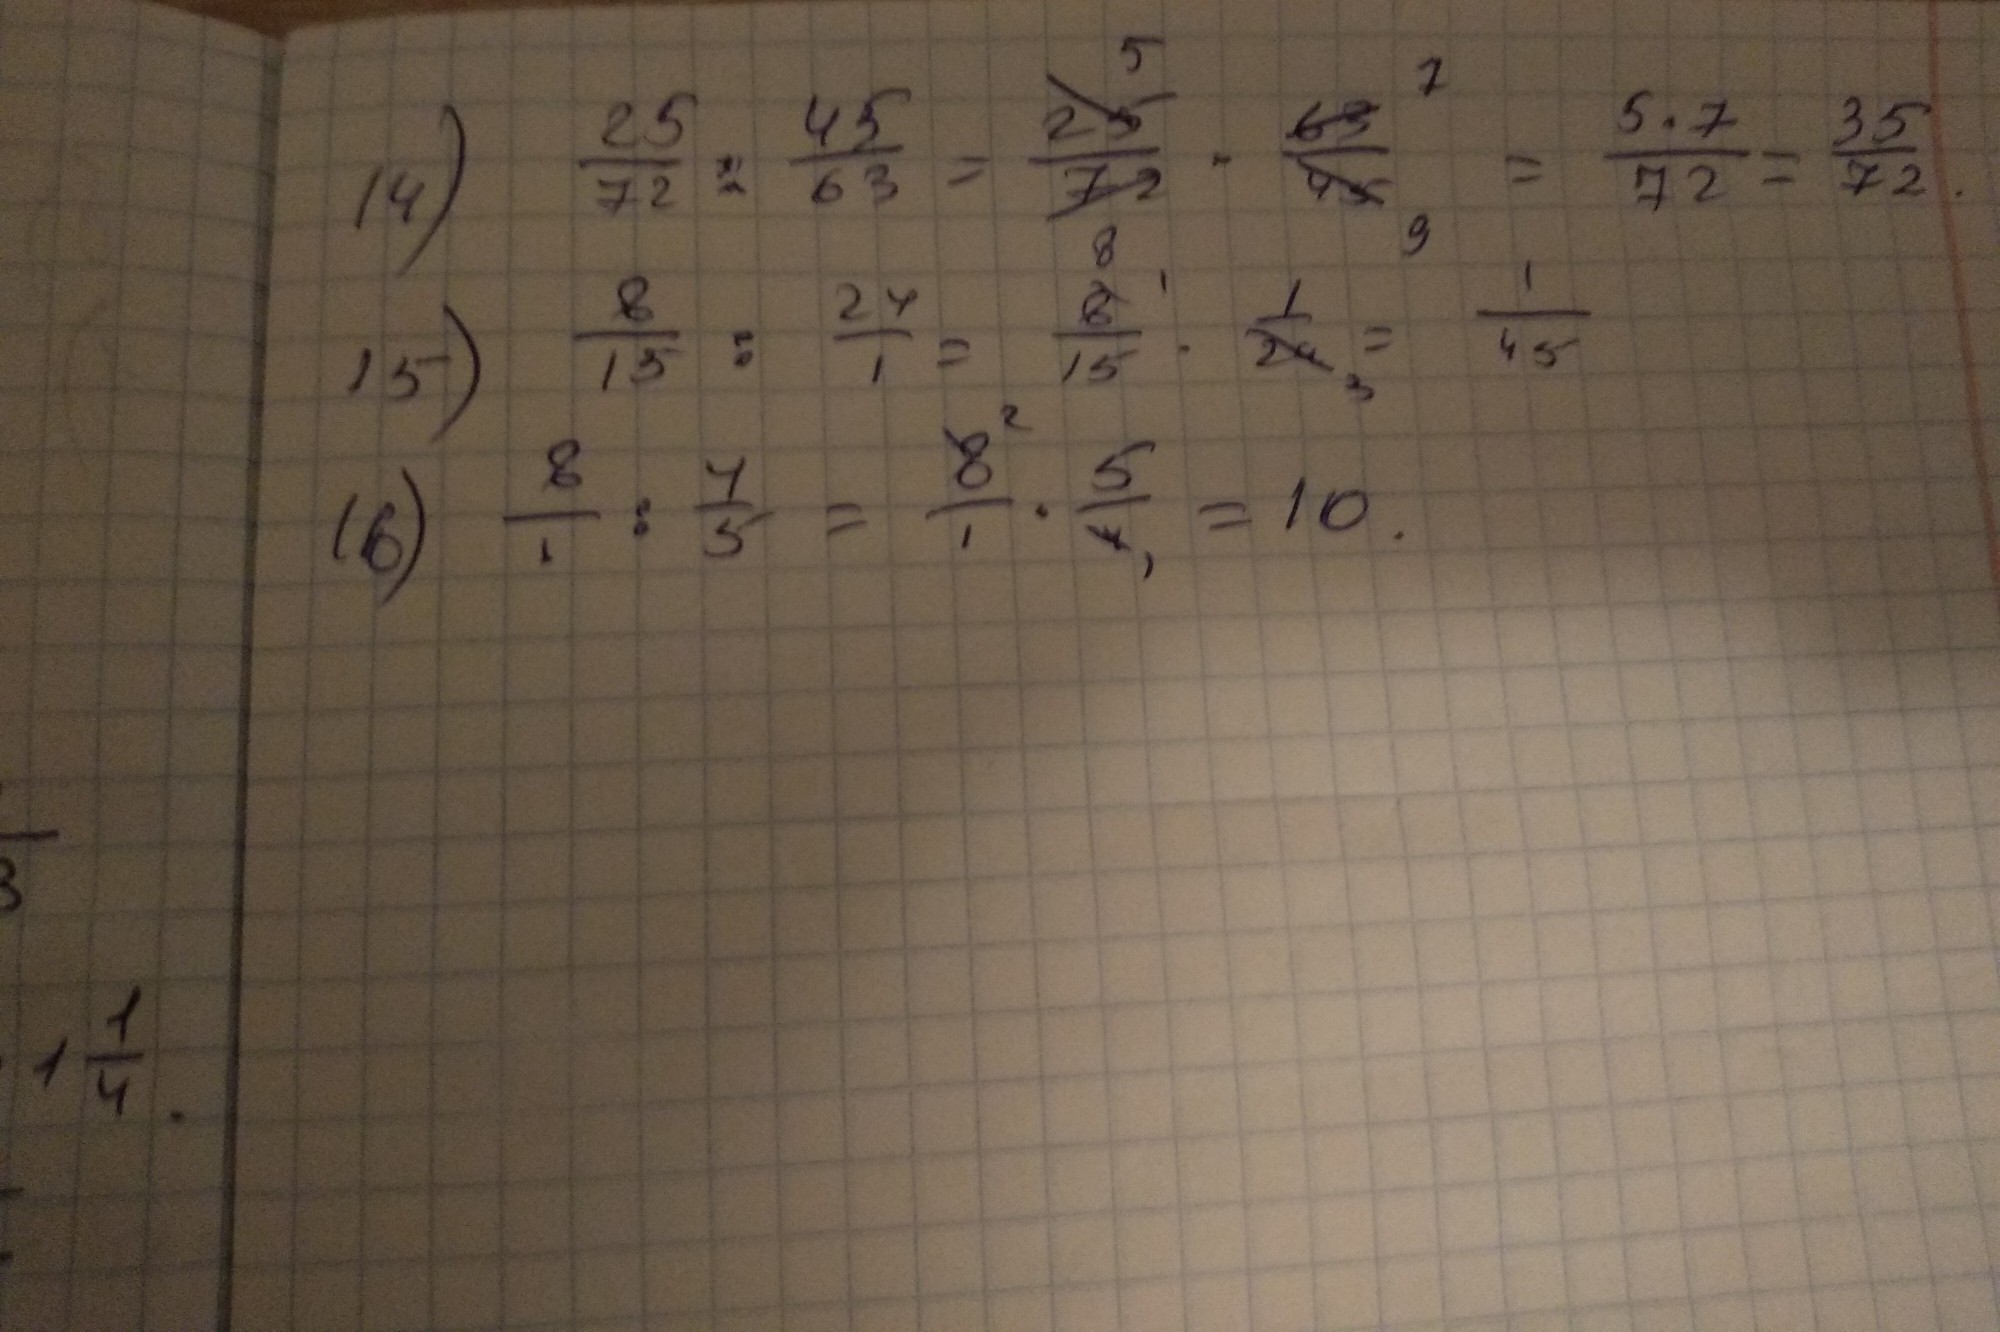 14) 25/72 : 45/63 = 25/72 5 8 · 63/45 7 9 = 5·7/72 = 35/72.
15) 8/15 : 24/1 = 8/15 1 · 1/24 3 = 1/45
16) 8/1 : 4/5 = 8/1 2 · 5/4 1 = 10.
3
1 1/4.